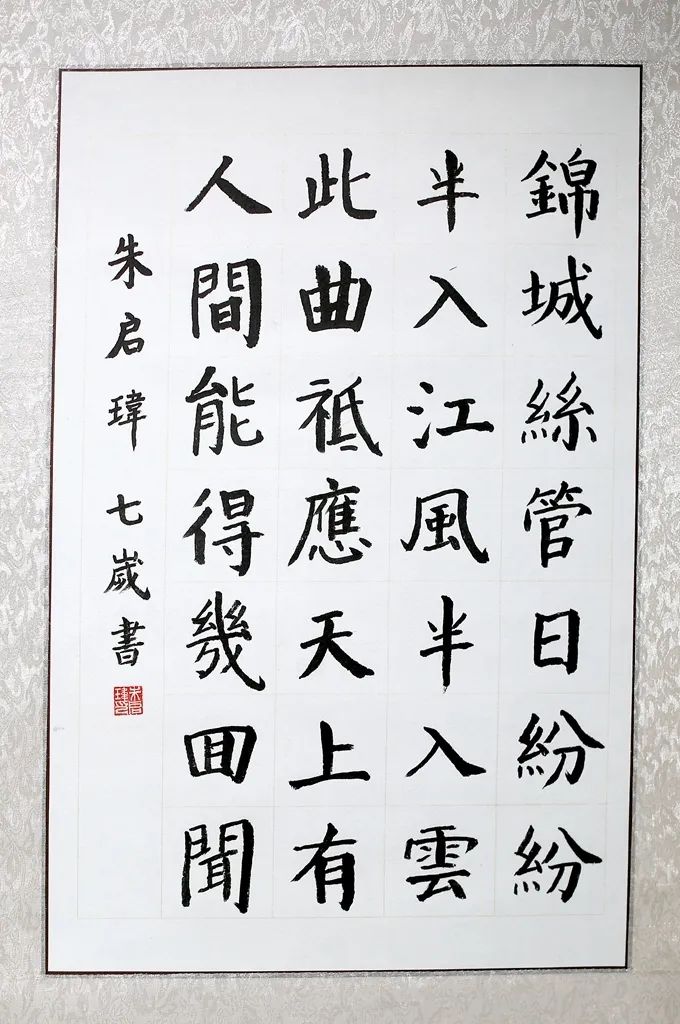 錦城絲管日紛紛
半入江風半入雲
此曲祗應天上有
人間能得幾囬聞
朱启瑋七歲書